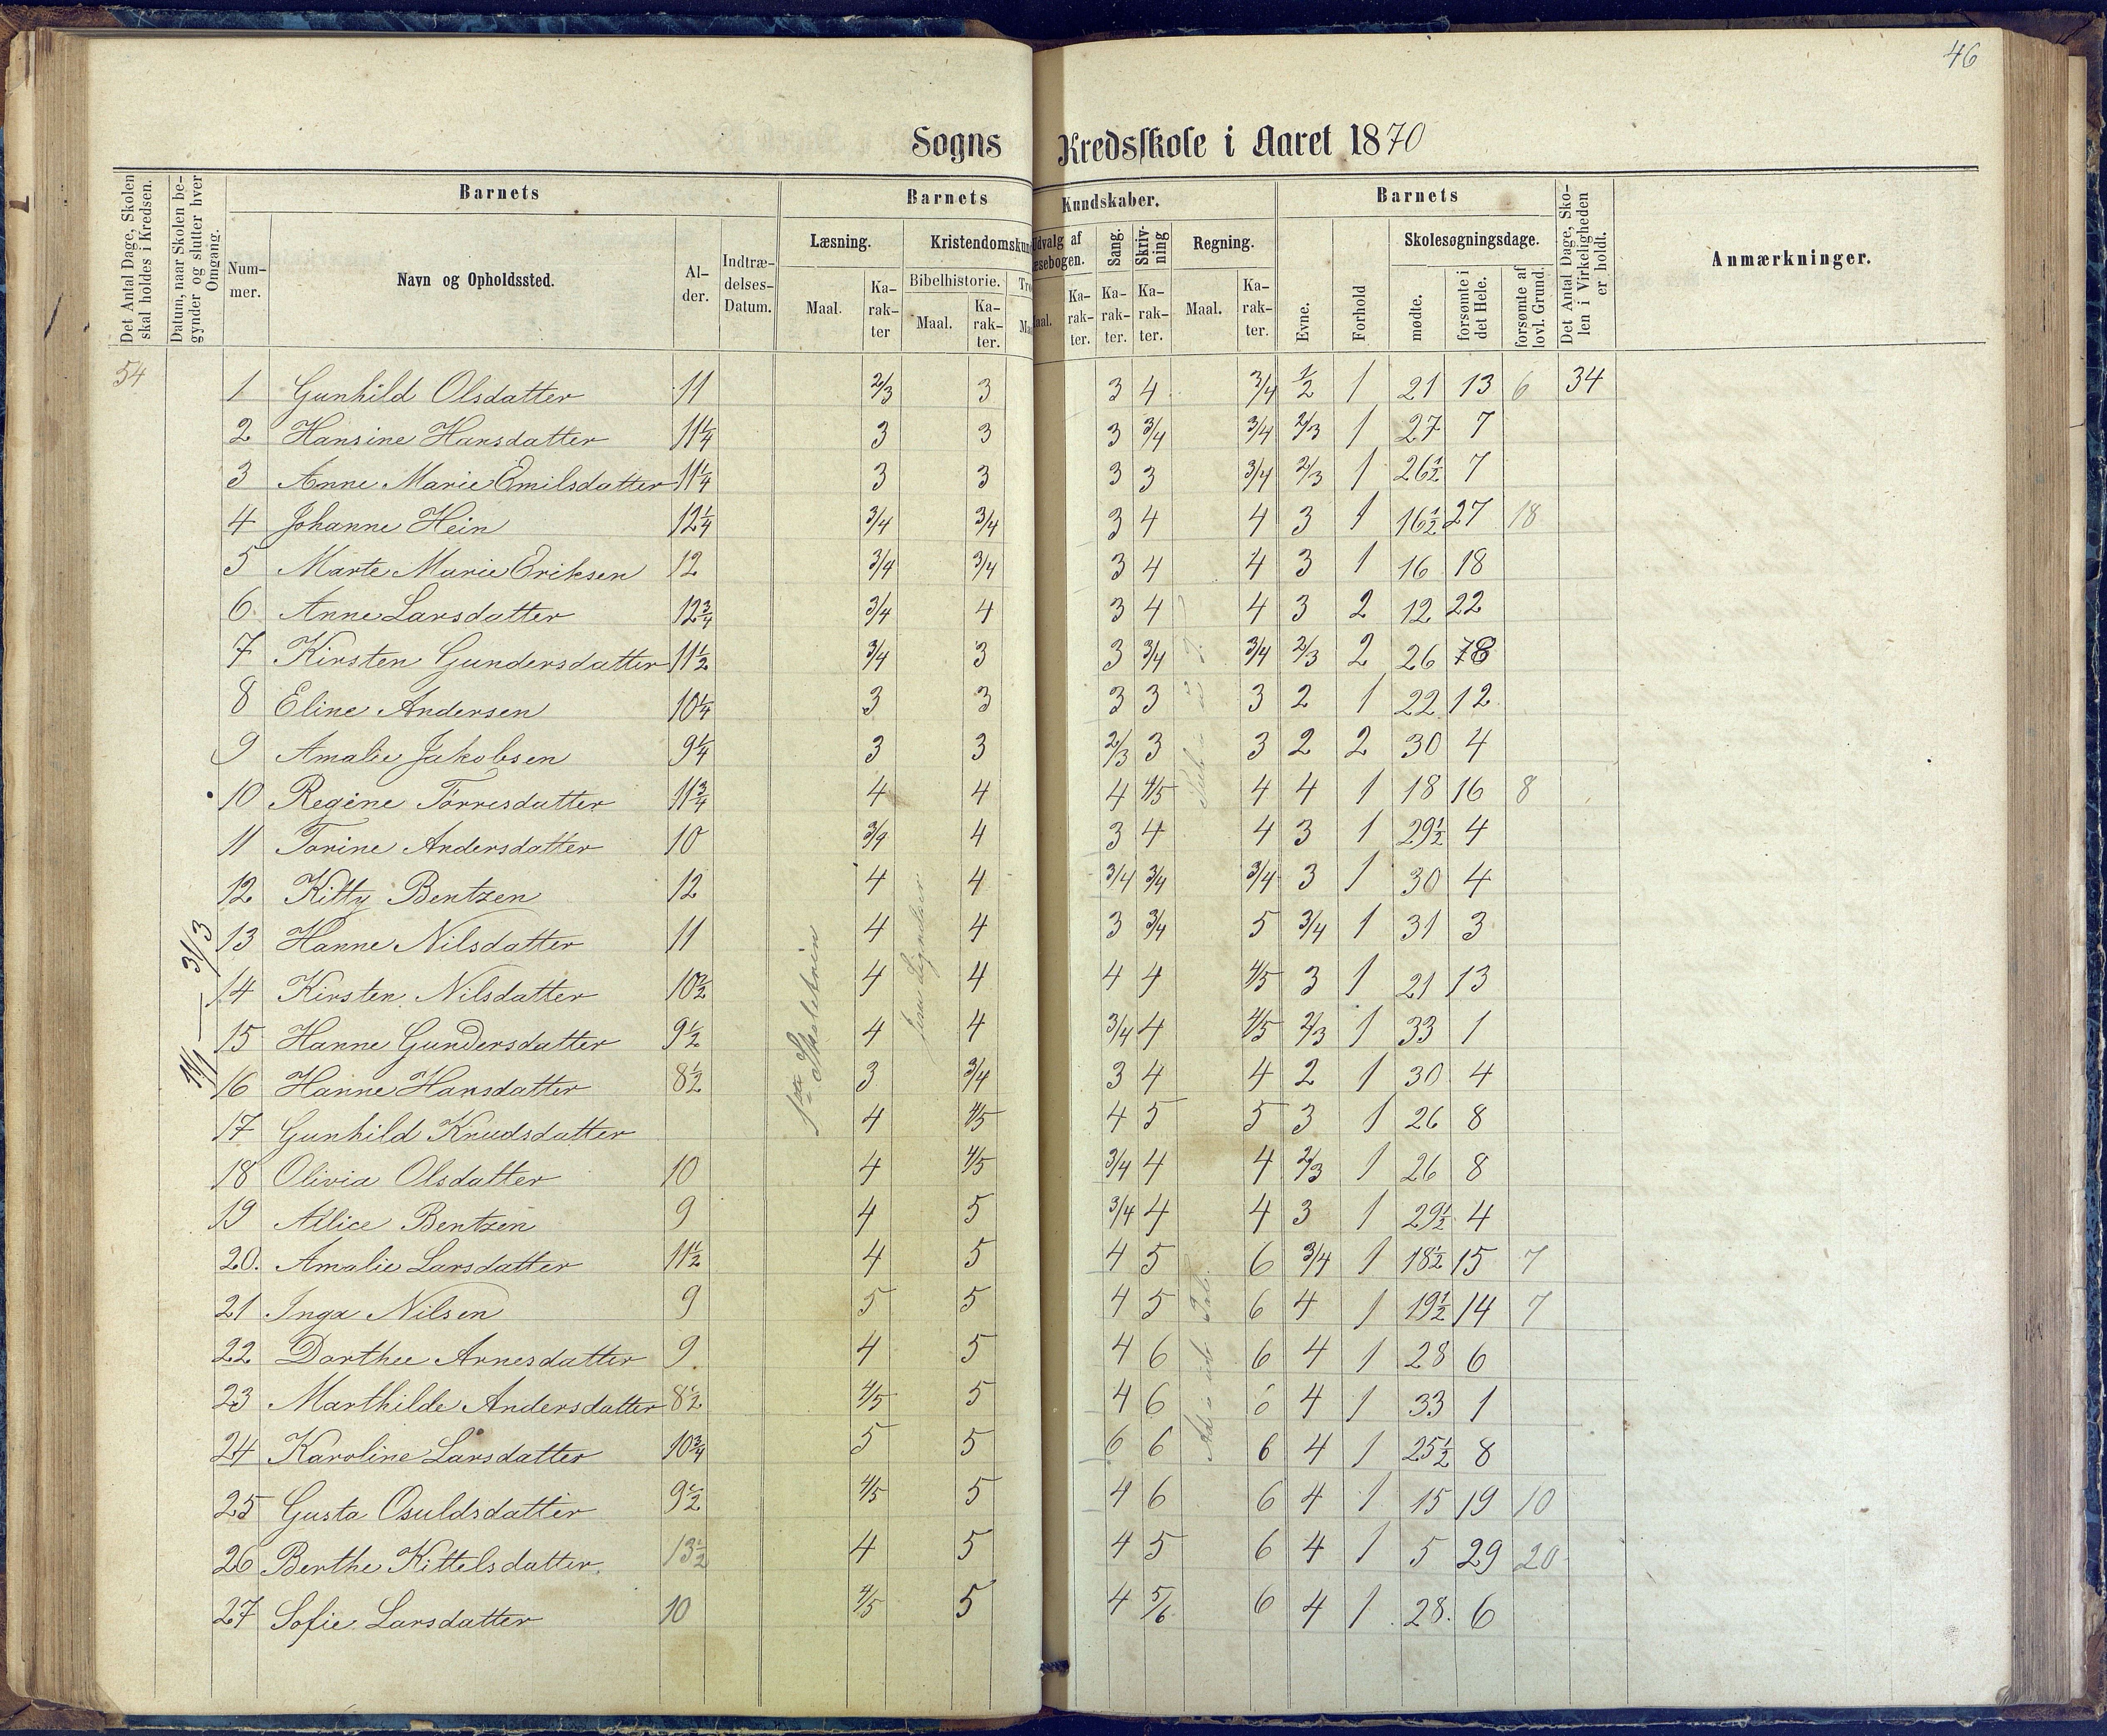 46
Sogns Kredsskole i Aaret 1870
Det Antal Dage, Skolen skal holdes i Kredsen.
Datum, naar Skolen begynder og slutter hver Omgang.
Barnets
Barnets Kundskaber.
Barnets
Det Antal Dage, Skolen i Virkeligheden er holdt.
Anmærkninger.
Nummer.
Navn og Opholdssted.
Alder.
Indtrædelses-Datum.
Læsning.
Kristendomskun
Udvalg af
æsebogen.
Sang.
Skrivning
Regning.
Evne.
Forhold
Skolesøgningsdage.
Bibelhistorie.
Maal. Karakter Maal. Karakter. Karakter. Karakter. Karakter. Maal. Karakter. mødte. forsømte i det Hele. forsømte af lovl. Grund.
54
1 Gunhild Olsdatter 11 2/3 3 3 4 3/4 1/2 1 21 13 6 34
2 Hansine Hansdatter 11 1/4 3 3 3 3/4 3/4 2/3 1 27 7
3 Anne Marie Emilsdatter 11 1/4 3 3 3 3 3/4 2/3 1 26 1/2 7
4 Johanne Hein 12 1/4 3/4 3/4 3 4 4 3 1 16 1/2 27 18
5 Marte Marie Eriksen 12 3/4 3/4 3 4 4 3 1 16 18
6 Anne Larsdatter 12 3/4 3/4 4 3 4 4 3 2 12 22
7 Kirsten Gundersdatter 11 1/2 3/4 3 3 3/4 3/4 2/3 2 26 8
8 Eline Andersen 10 1/4 3 3 3 3 3 2 1 22 12
9 Amalie Jakobsen 9 1/4 3 3 2/3 3 3 2 2 30 4
10 Regine Torresdatter 11 3/4 4 4 4 4/5 4 4 1 18 16 8
11 Torine Andersdatter 10 3/4 4 3 4 4 3 1 29 1/2 4
12 Kitty Bentzen 12 4 4 3/4 3/4 3/4 3 1 30 4
13 Hanne Nilsdatter 11 4 4 3 3/4 5 3/4 1 31 3
14 Kirsten Nilsdatter 10 1/2 4 4 4 4 4/5 3 1 21 13
15 Hanne Gundersdatter 9 1/2 4 4 3/4 4 4/5 2/3 1 33 1
16 Hanne Hansdatter 8 1/2 3 3/4 3 4 4 2 1 30 4
17 Gunhild Knudsdatter 4 4/5 4 5 5 3 1 26 8
18 Olivia Olsdatter 10 4 4/5 3/4 4 4 2/3 1 26 8
19 Allice Bentzen 9 4 5 3/4 4 4 3 1 29 1/2 4
20. Amalie Larsdatter 11 1/2 4 5 4 5 6 3/4 1 18 1/2 15 7
21 Inga Nilsen 9 5 5 4 5 6 4 1 19 1/2 14 7
22 Dorthee Arnesdatter 9 4 5 4 6 6 4 1 28 6
23 Marthilde Andersdatter 8 1/2 4/5 5 4 6 6 4 1 33 1
24 Karoline Larsdatter 10 3/4 5 5 6 6 6 4 1 25 1/2 8
25 Gusta Osuldsdatter 9 1/2 4/5 5 4 6 6 4 1 15 19 10
26 Berthe Kittelsdatter. 13 1/2 4 5 4 5 6 4 1 5 29 20
27 Sofie Larsdatter 10 4/5 5 4 5/6 6 4 1 28. 6